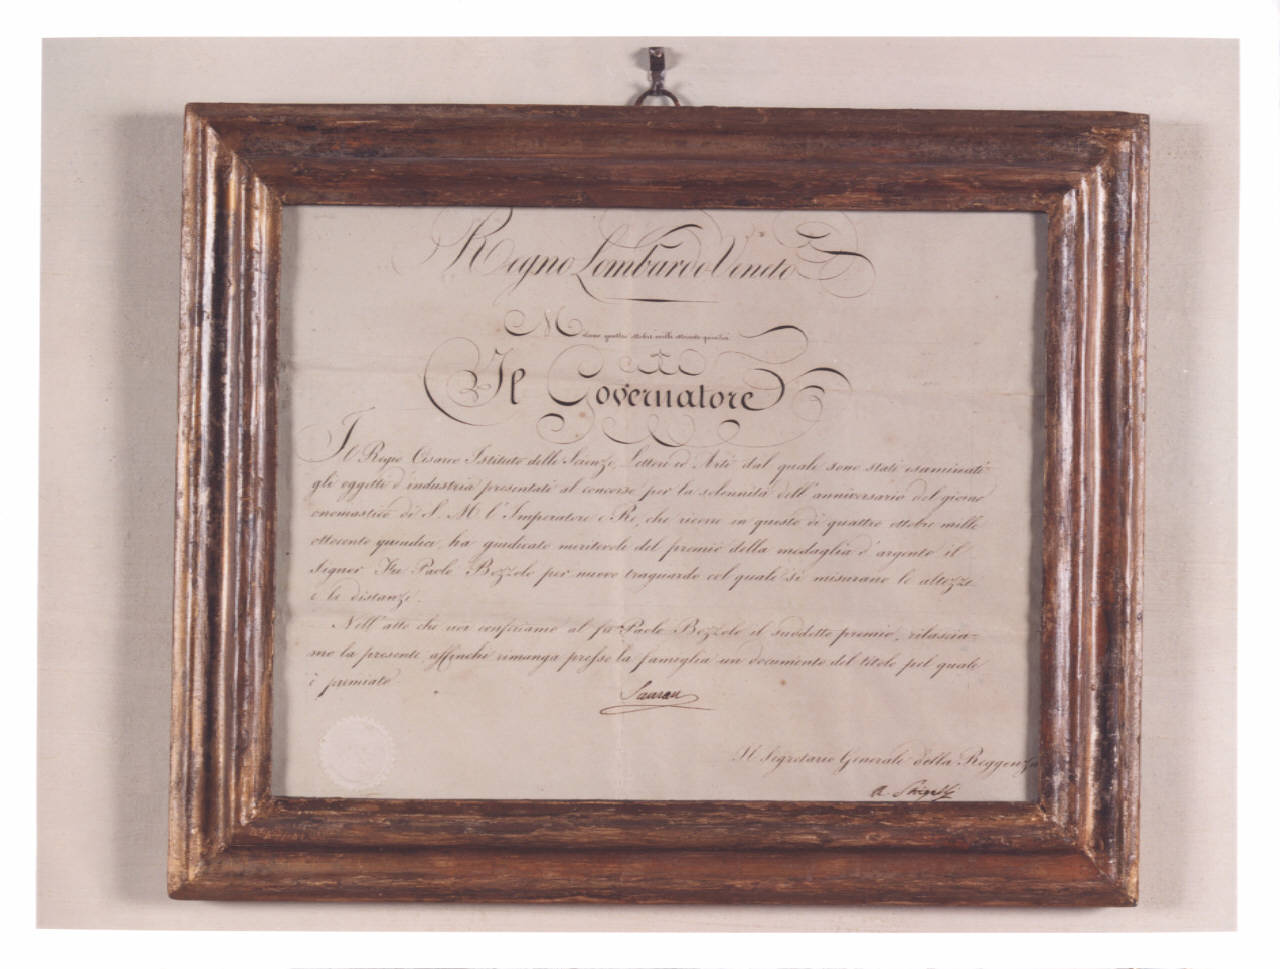 Regno Lombardo Veneto
Milano quattro ottobre mille ottocento quindici
Il Governatore
Il Regio Cesareo Istituto delle Scienze, Lettere ed Arti dal quale sono stati esaminati
gli oggetti d'industria presentati al concorso per la solennità dell'anniversario del giorno
onomastico di S. M. l'Imperatore e Re, che ricorre in questo dì quattro ottobre mille
ottocento quindici, ha giudicato meritevole del premio della medaglia d'argento il
Signor Fu Paolo Bozzolo per nuovo traguardo col quale si misurano le altezze
e le distanze.
Nell'atto che noi conferiamo al fu Paolo Bozzolo il suddetto premio, rilascia-
mo la presente affinché rimanga presso la famiglia un documento del titolo pel quale
è premiato
Saurau
Il Segretario Generale della Reggenza
A.